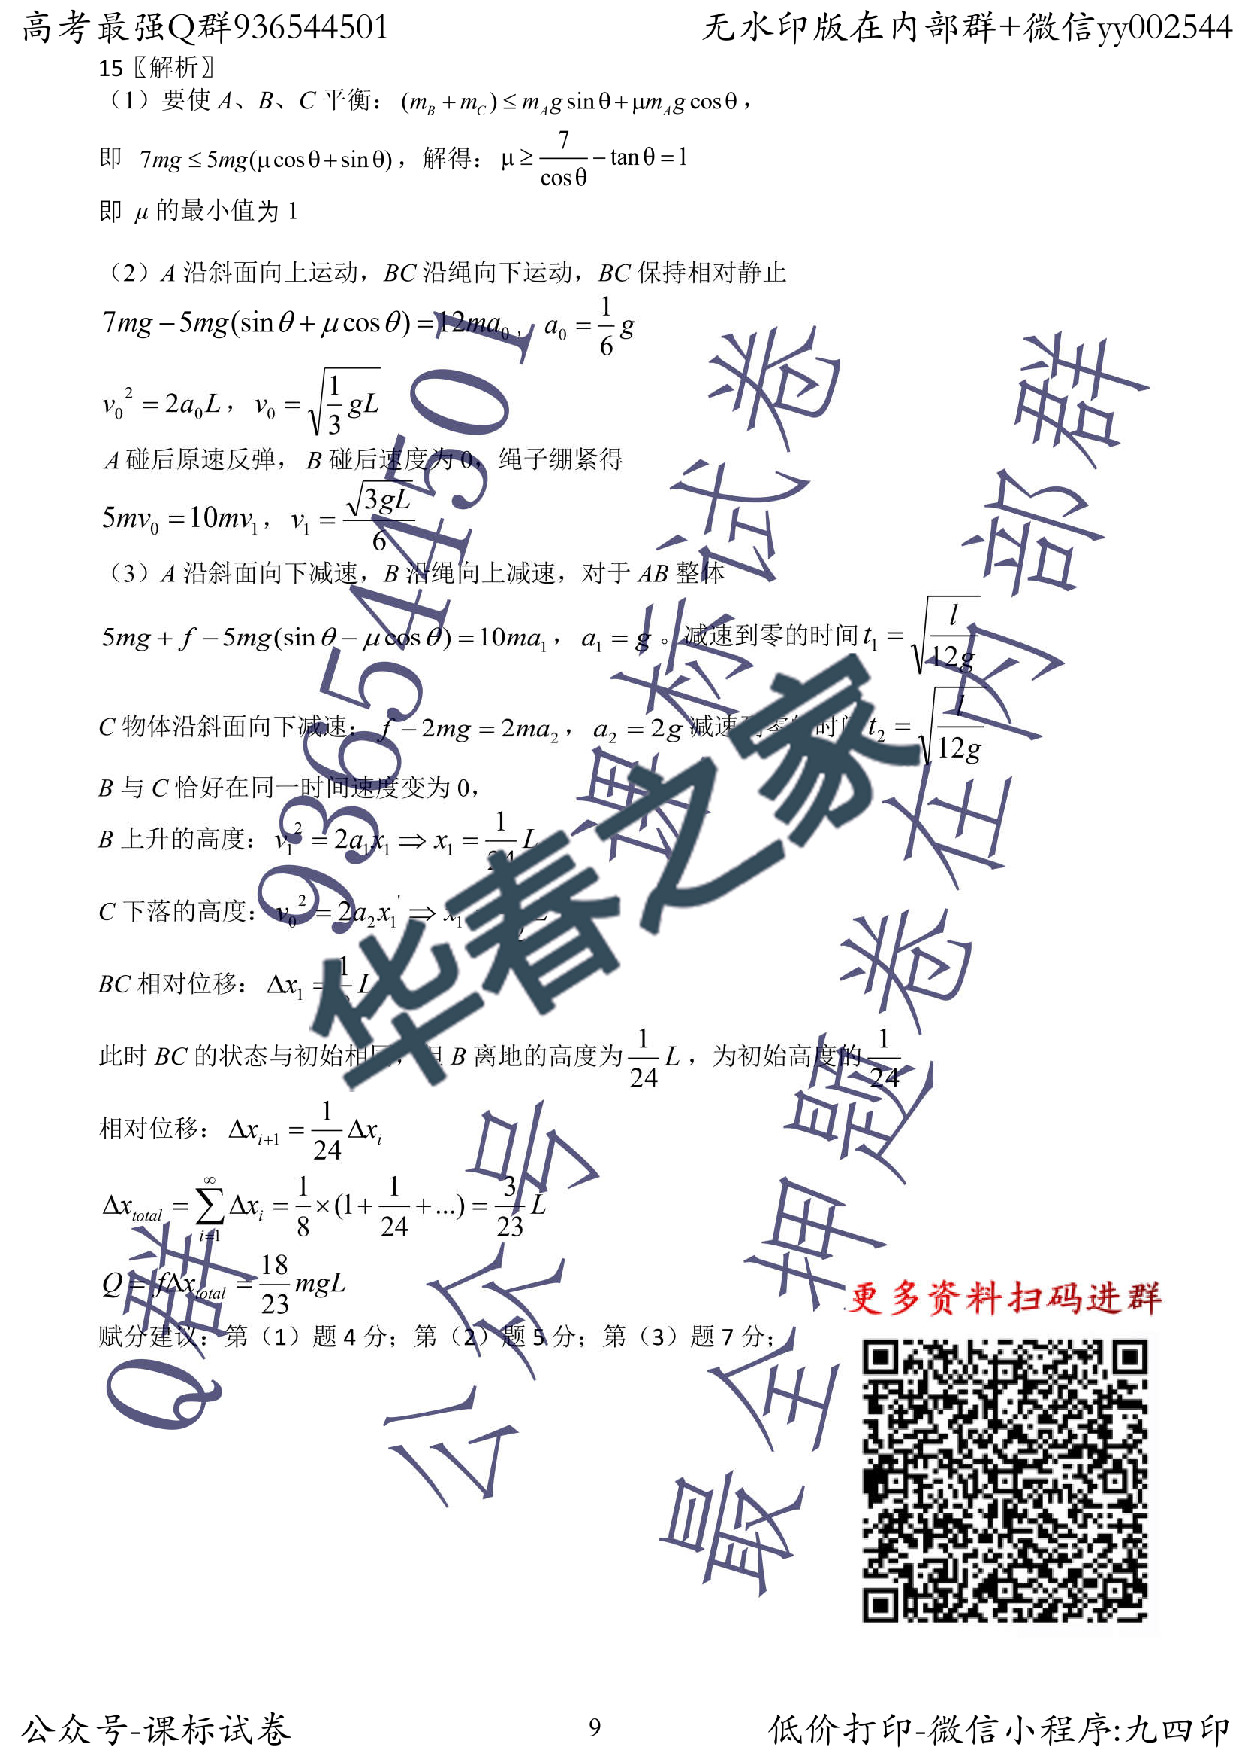 高考最强Q群936544501
无水印版在内部群+微信yy002544
15〖解析〗
（1）要使 A、B、C 平衡：(m_B + m_C) ≤ m_A g sin θ + μ m_A g cos θ，
即 7mg ≤ 5mg(μ cos θ + sin θ)，解得：μ ≥ 7/cos θ − tan θ = 1
即 μ 的最小值为 1
（2）A 沿斜面向上运动，BC 沿绳向下运动，BC 保持相对静止
7mg − 5mg(sin θ + μ cos θ) = 12ma₀，a₀ = 1/6 g
v₀² = 2a₀L，v₀ = √(1/3 gL)
A 碰后原速反弹，B 碰后速度为 0，绳子绷紧得
5mv₀ = 10mv₁，v₁ = √(3gL)/6
（3）A 沿斜面向下减速，B 沿绳向上减速，对于 AB 整体
5mg + f − 5mg(sin θ − μ cos θ) = 10ma₁，a₁ = g。减速到零的时间 t₁ = √(l/12g)
C 物体沿斜面向下减速：f − 2mg = 2ma₂，a₂ = 2g 减速 时间 t₂ = √(l/12g)
B 与 C 恰好在同一时间速度变为 0，
B 上升的高度：v₁² = 2a₁x₁ ⇒ x₁ = 1/24 L
C 下落的高度：v₀² = 2a₂x₁' ⇒ x₁
BC 相对位移：Δx₁ = 1 L
此时 BC 的状态与初始相 ，B 离地的高度为 1/24 L，为初始高度的 1/24
相对位移：Δx_{i+1} = 1/24 Δx_i
Δx_total = ∑_{i=1}^{∞} Δx_i = 1/8 × (1 + 1/24 + ...) = 3/23 L
Q = fΔx_total = 18/23 mgL
赋分建议：第（1）题 4 分；第（2）题 5 分；第（3）题 7 分；
Q群936544501
公众号 课标试卷
最全押题卷在内部群
华春之家
更多资料扫码进群
公众号-课标试卷
9
低价打印-微信小程序:九四印